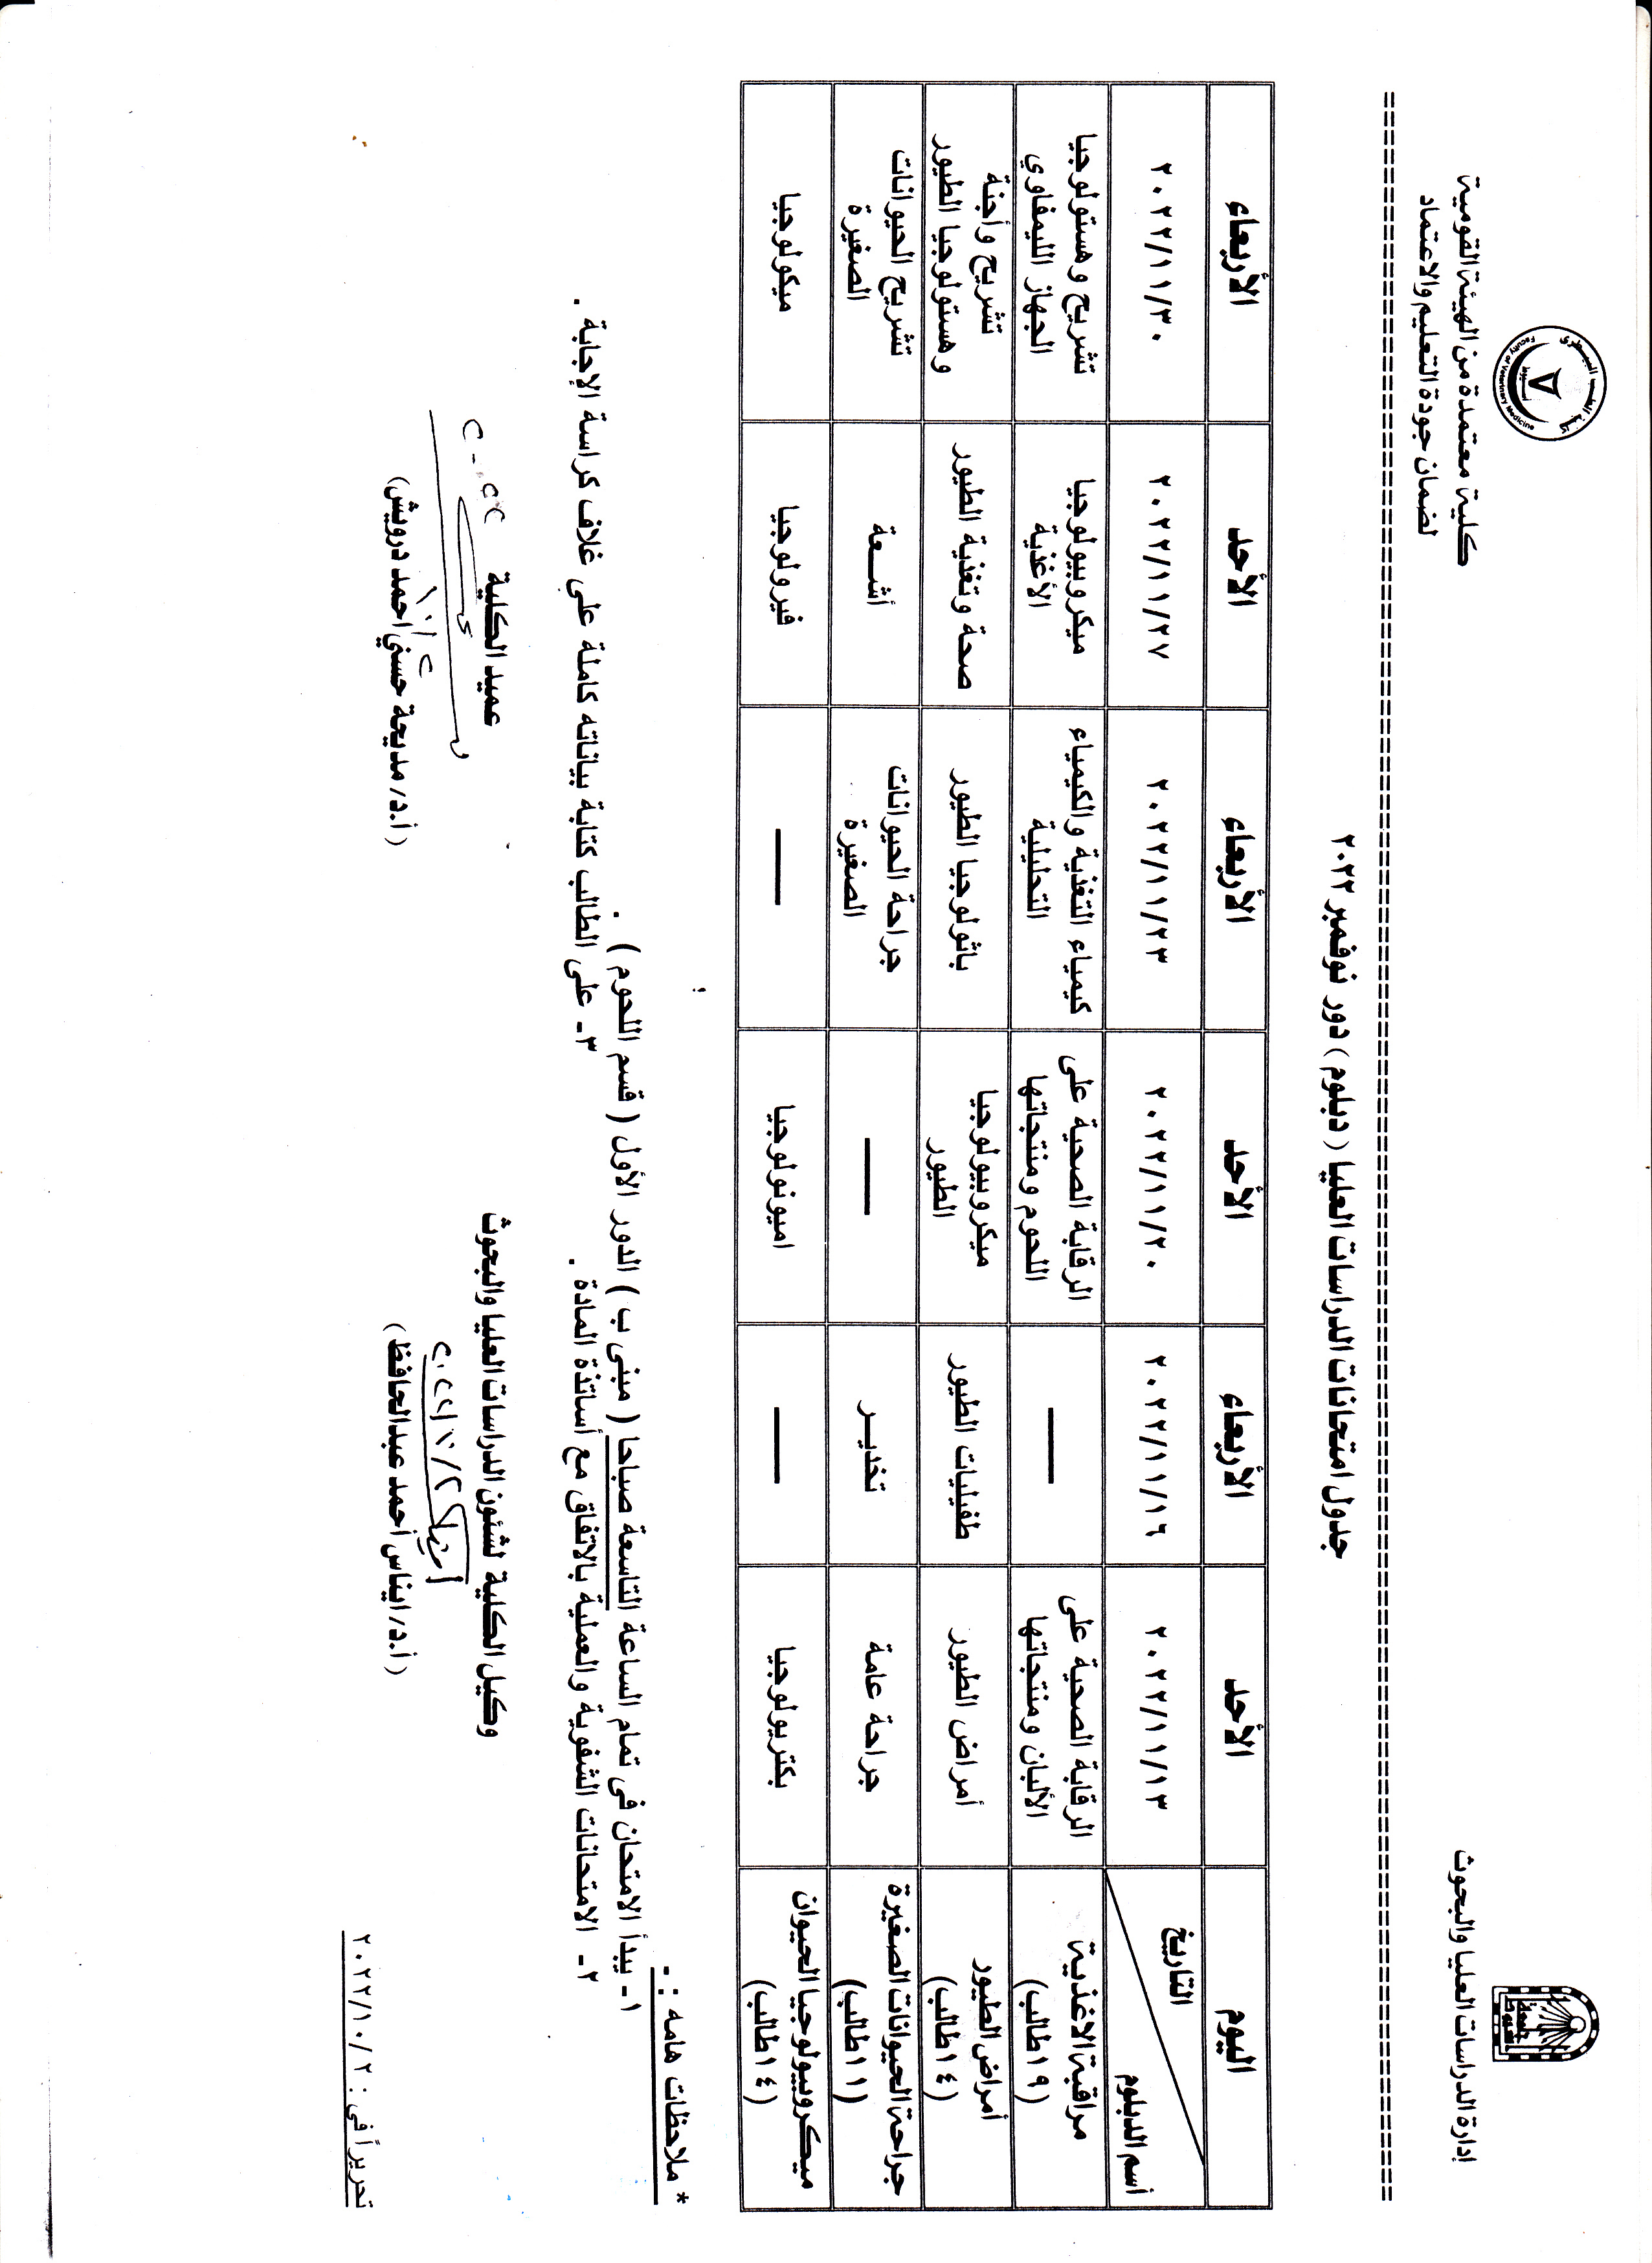 إدارة الدراسات العليا والبحوث
كلية معتمدة من الهيئة القومية
لضمان جودة التعليم والاعتماد
Faculty of Veterinary Medicine
جدول امتحانات الدراسات العليا ( دبلوم ) دور نوفمبر ٢٠٢٢
اليوم الأحد الأربعاء الأحد الأربعاء الأحد الأربعاء
التاريخ
أسم الدبلوم
٢٠٢٢/١١/١٣ ٢٠٢٢/١١/١٦ ٢٠٢٢/١١/٢٠ ٢٠٢٢/١١/٢٣ ٢٠٢٢/١١/٢٧ ٢٠٢٢/١١/٣٠
مراقبة الاغذية
(١٩ طالب)
الرقابة الصحية على
الألبان ومنتجاتها
—
الرقابة الصحية على
اللحوم ومنتجاتها
كيمياء التغذية والكيمياء
التحليلية
ميكروبيولوجيا
الأغذية
تشريح وهستولوجيا
الجهاز الليمفاوي
أمراض الطيور
(١٤ طالب)
أمراض الطيور
طفيليات الطيور
ميكروبيولوجيا
الطيور
باثولوجيا الطيور
صحة وتغذية الطيور
تشريح وأجنة
وهستولوجيا الطيور
جراحة الحيوانات الصغيرة
(١١ طالب)
جراحة عامة
تخديـر
—
جراحة الحيوانات
الصغيرة
أشـعة
تشريح الحيوانات
الصغيرة
ميكروبيولوجيا الحيوان
(١٤ طالب)
بكتريولوجيا
—
اميونولوجيا
—
فيرولوجيا
ميكولوجيا
* ملاحظات هامه : -
١- يبدأ الامتحان فى تمام الساعة التاسعة صباحا ( مبنى ب ) الدور الأول ( قسم اللحوم ) .
٢- الامتحانات الشفوية والعملية بالاتفاق مع أساتذة المادة .
٣- على الطالب كتابة بياناته كاملة على غلاف كراسة الإجابة .
وكيل الكلية لشئون الدراسات العليا والبحوث
(أ.د/ ايناس أحمد عبدالحافظ)
عميد الكلية
(أ.د/ مديحة حسني احمد درويش)
تحريراً في : ٢٠٢٢/١٠/٢